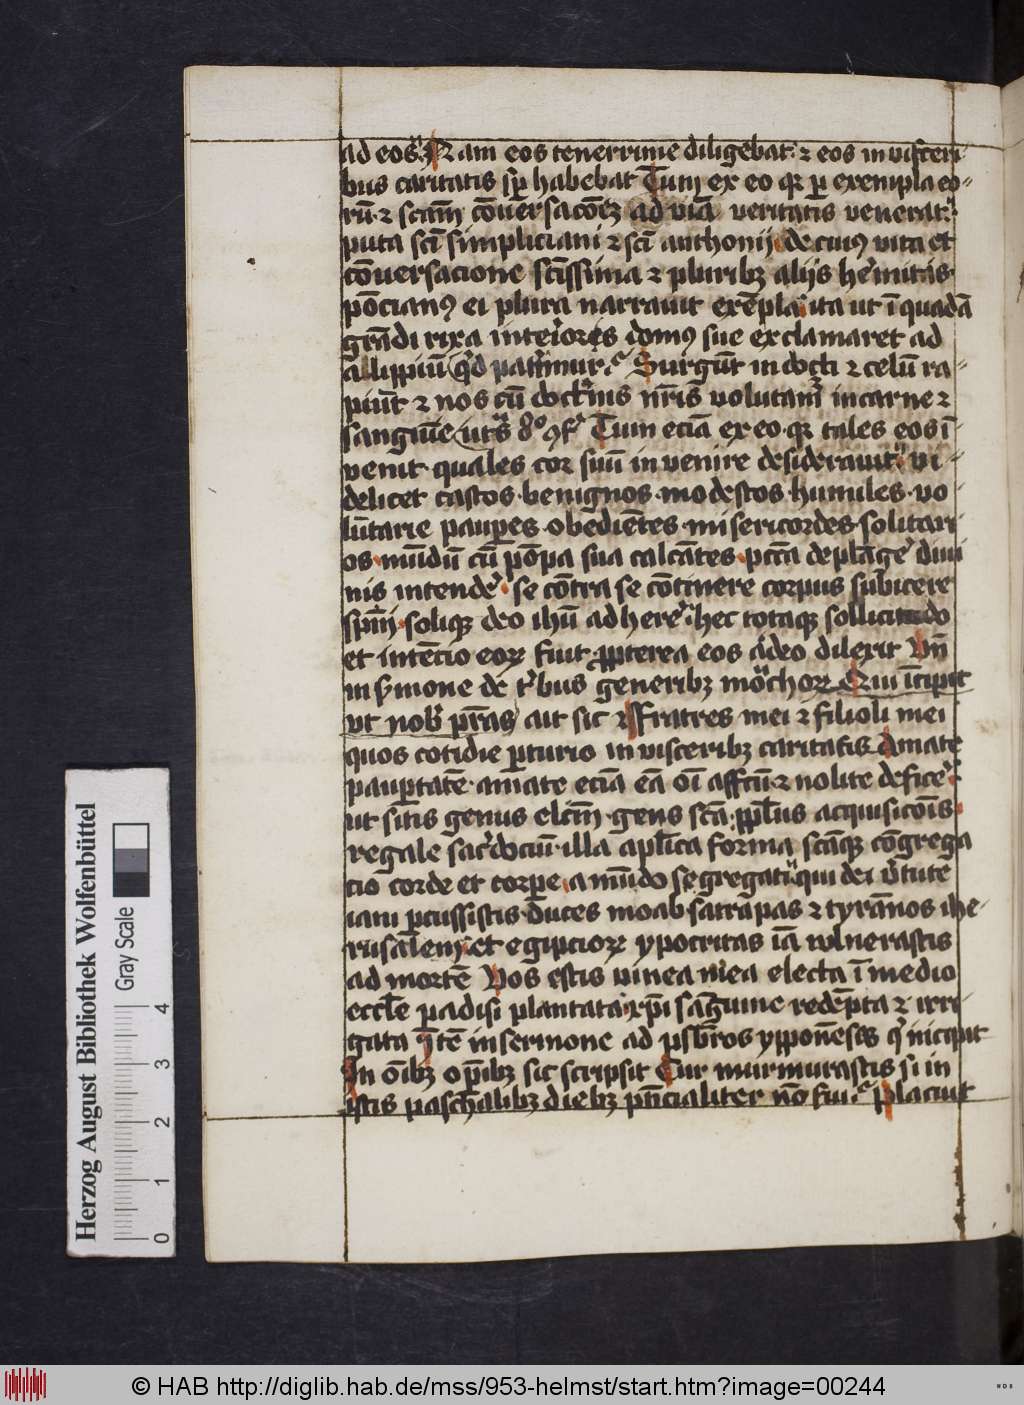 ad eos. Nam eos tenerrime diligebat ⁊ eos in visceri
bus caritatis sp̱ habebat Tum ex eo qꝛ ꝑ exempla eo-
rū ⁊ scām cōuersacōeꝫ ad viā veritatis venerat.
puta scī simpliciani ⁊ scī anthonij de cuiꝰ vita et
cōuersacione scīssima ⁊ pluribꝫ alijs heˀmitis
pōcianꝰ ei plura narrauit exēpla ita ut ī quadā
grādi rixa inteˀiores domꝰ sue exclamaret ad
allippiū qˀd patimur Surgūt indocti ⁊ celū ra-
piūt ⁊ nos cū doctˀnis nrīs volutamˀ in carne ⁊
sanguīe Tum eciā ex eo qꝛ tales eos ī-
venit quales cor suū invenire desiderauit vi-
delicet castos benignos modestos humiles vo
lūtarie pauꝑes obediētes misericordes solitari
os mūdū cū pōpa sua calcātes pccā deplāgeˀ diui
nis intendeˀ se cōtra se cōtinere corpus subicere
spūi solique deo ihū adhereˀ hec totaqꝫ sollicitudo
et intēcio eoꝝ fuit ꝓpterea eos adeo dilexit Vñ
in sˀmone de tˀbus generibꝫ moˀchoꝝ Qui īcipit
vt nobˀ pr̄as ait sic ⁊ ffratres mei ⁊ filioli mei
quos cotidie ꝑturio in visceribꝫ caritatis Amate
pauꝑtatē amate eciā eā oī affcū ⁊ nolite deficeˀ
ut sitis genus elcm̄ gens scā ppl̄us acquisicōis
regale sacˀdociū illa apl̄ica forma scāqꝫ cōgrega
cio corde et corꝑe a mūdo segregati qui dei vˀtute
iam ꝑcussistis duces moab satrapas ⁊ tyrānos ihe-
rusalem et egipcioꝝ ypocritas iā vulnerastis
ad mortē Vos estis vinea mea electa ī medio
eccl̄e ꝑadisi plantata xp̄i sāguine redēpta ⁊ irri-
gata Itē in sermone ad psbr̄os ypponēses qˀ incipit
In oībꝫ oꝑibꝫ sic scripsit Cur murmurastis si in
istis paschalibꝫ diebꝫ pn̄cialiter nō fui Placuit
Herzog August Bibliothek Wolfenbüttel
Gray Scale
0 1 2 3 4
© HAB http://diglib.hab.de/mss/953-helmst/start.htm?image=00244